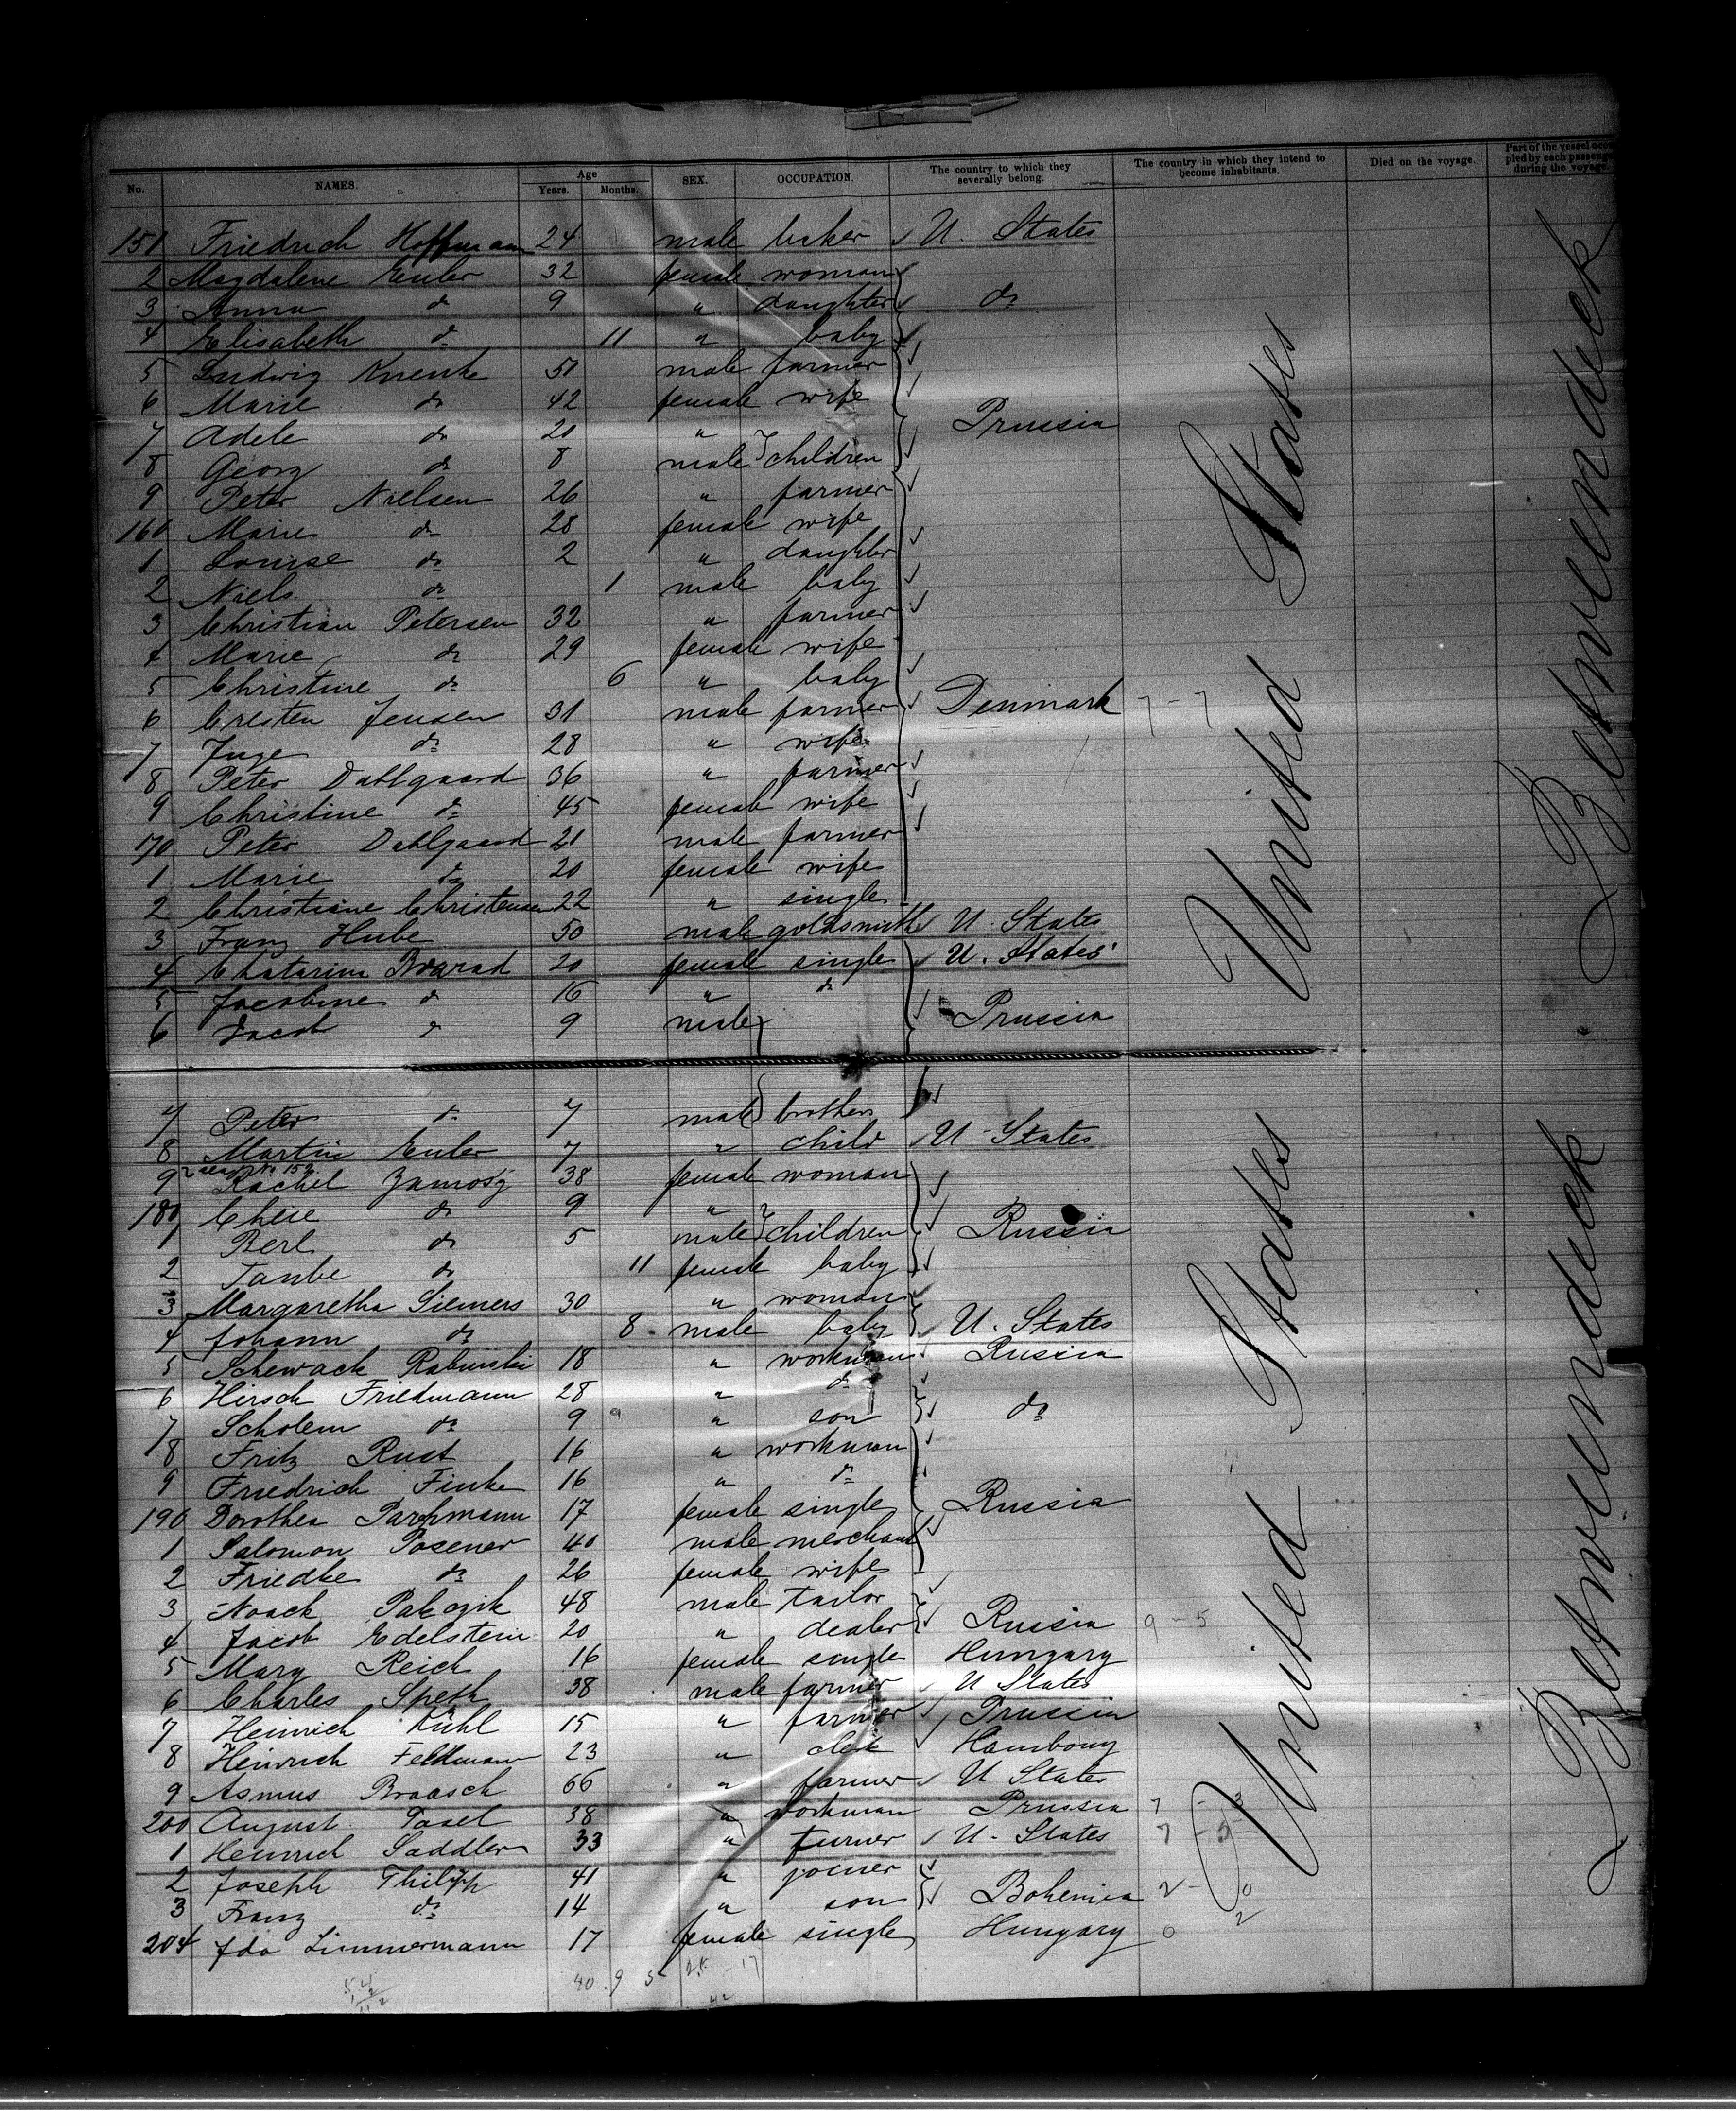 No. NAMES. Age Years. Months. SEX. OCCUPATION. The country to which they severally belong. The country in which they intend to become inhabitants. Died on the voyage. Part of the vessel occupied by each passenger during the voyage.
151 Friedrich Hoffmann 24 male baker U. States
2 Magdalene Euler 32 female woman
3 Anna do 9 " daughter do
4 Elisabeth do 11 " baby
5 Ludwig Knenke 51 male farmer
6 Marie do 42 female wife
7 Adele do 20 " Prussia
8 Georg do 8 male children
9 Peter Nielsen 26 " farmer
160 Marie do 28 female wife
1 Louise do 2 " daughter
2 Niels do 1 male baby
3 Christian Petersen 32 " farmer
4 Marie do 29 female wife
5 Christine do 6 " baby
6 Cresten Jensen 31 male farmer Denmark 7-7
7 Inge do 28 " wife
8 Peter Dahlgaard 36 " farmer
9 Christine do 45 female wife
170 Peter Dahlgaard 21 male farmer
1 Marie do 20 female wife
2 Christiane Christensen 22 " single
3 Franz Hube 50 male goldsmith U. States
4 Chatarina Brarad 20 female single U. States
5 Jacobine do 16 " do
6 Jacob do 9 male Prussia
7 Peter do 7 male brothers
8 Martin Euler 7 " child U. States
9 Rachel Zamosz 38 female woman
180 Cheie do 9 "
1 Berl do 5 male children Russia
2 Taube do 11 female baby
3 Margaretha Siemers 30 " woman
4 Johann do 8 male baby U. States
5 Schewack Rabinski 18 " workman Russia
6 Hirsch Friedmann 28 " do
7 Scholem do 9 " son do
8 Fritz Rust 16 " workman
9 Friedrich Finke 16 " do
190 Dorothea Parchmann 17 female single Russia
1 Salomon Posener 40 male merchant
2 Friedke do 26 female wife
3 Noack 48 male tailor
4 Jacob Edelstein 20 " dealer Russia 9-5
5 Mary Reich 16 female single Hungary
6 Charles Speth 38 male farmer U States
7 Heinrich Kühl 15 " farmer Prussia
8 Heinrich Feldmann 23 " clerk Hambourg
9 Asmus Braasch 66 " farmer U States
200 August Pasel 38 " workman Prussia 7 - 3
1 Heinrich Saddler 33 " turner U. States 7 - 5
2 Joseph Philiph 41 " joiner
3 Franz do 14 " son Bohemia 2 - 0
204 Ida Limmermann 17 female single Hungary 0 2
United States
United States
Betweendeck
Betweendeck